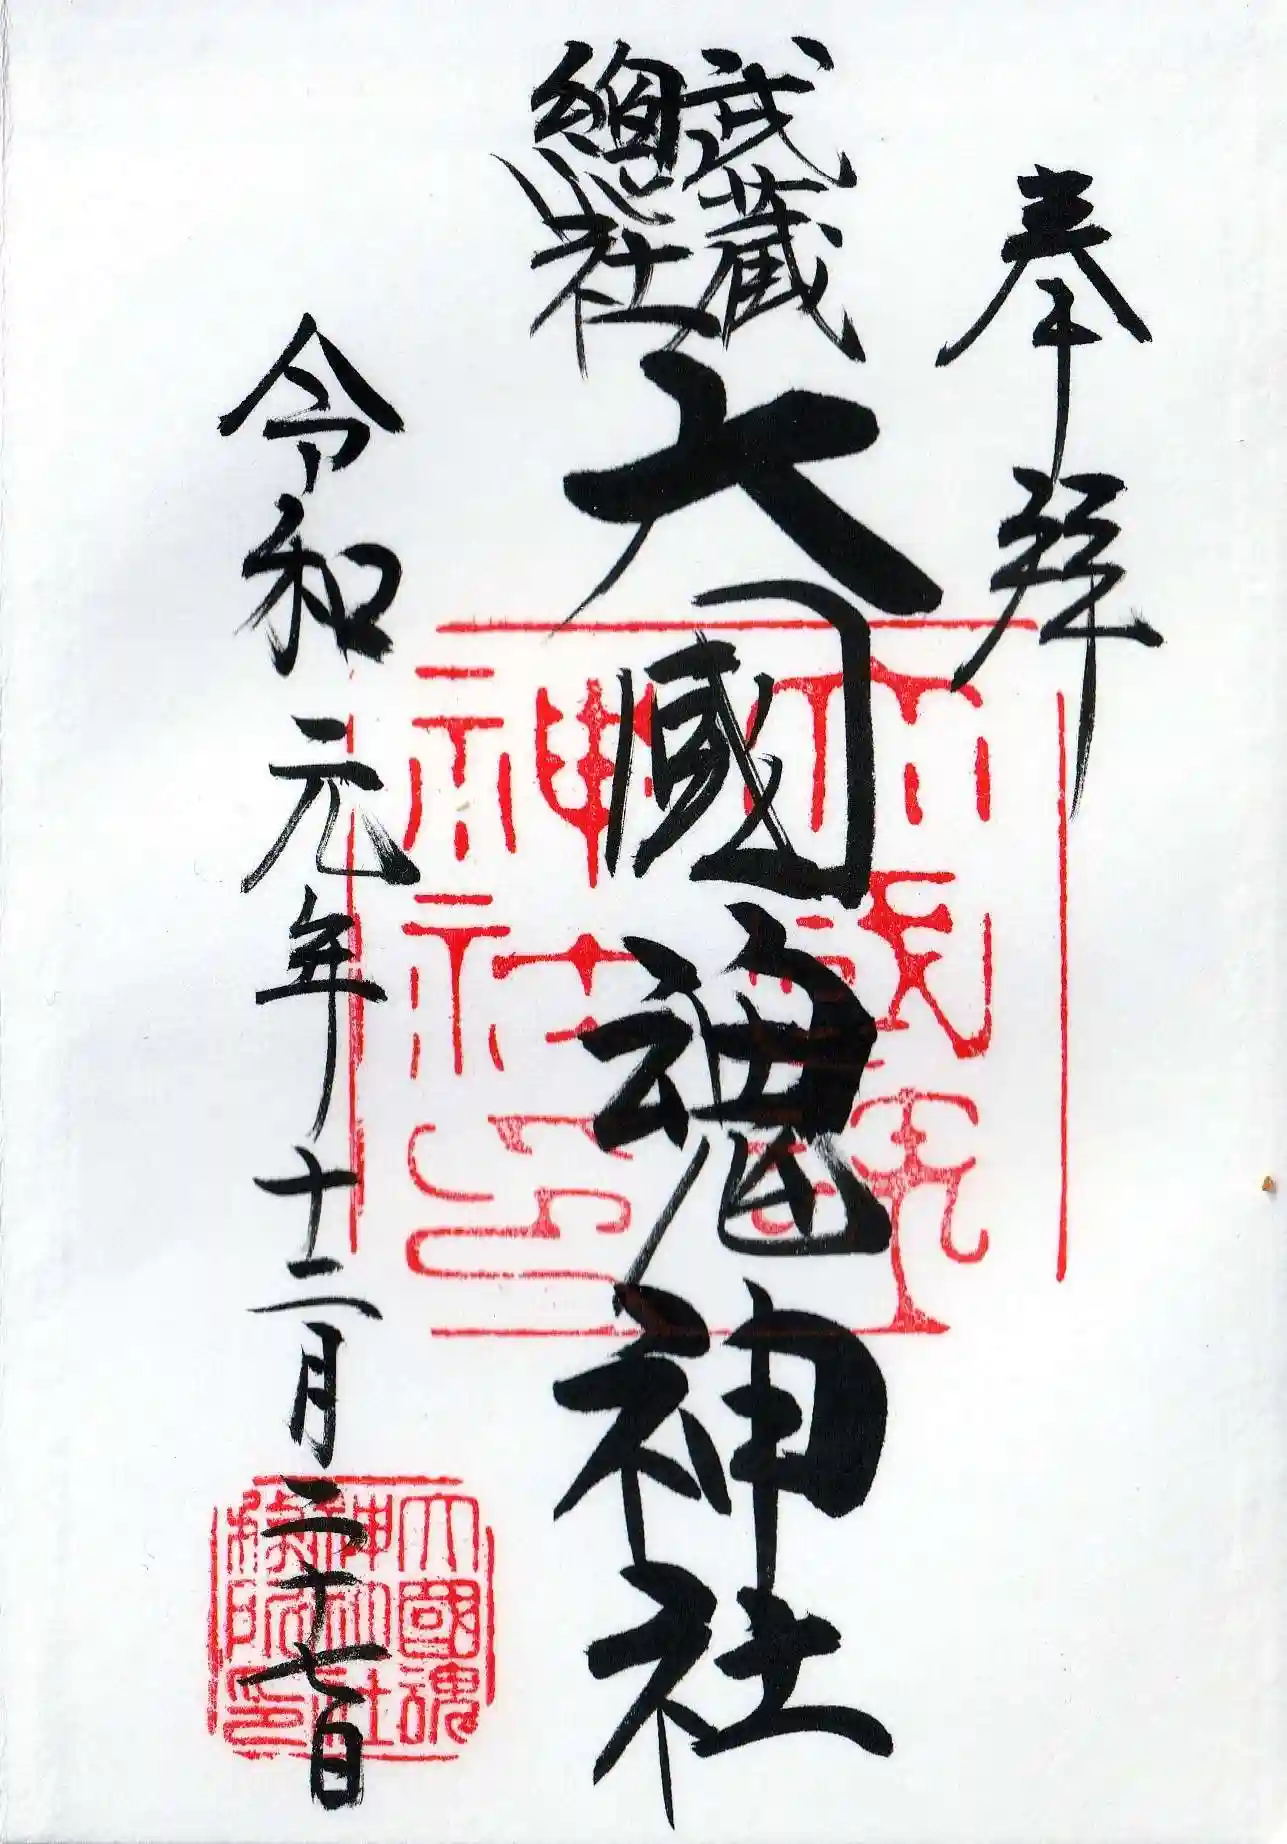 奉拝
武蔵
總社
大國魂神社
令和元年十二月二十七日
大國魂
神社
印
大國魂
神社